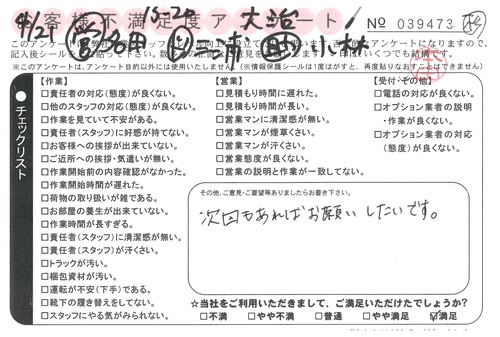 お客様不満足度アンケート
15-20
No 039473
4/21
大治
小林
チェックリスト
【作業】
□責任者の対応(態度)が良くない。
□他のスタッフの対応(態度)が良くない。
□作業を見ていて不安がある。
□責任者(スタッフ)に好感が持てない。
□お客様への挨拶が出来ていない。
□ご近所への挨拶・気遣いが無い。
□作業開始前の内容確認がなかった。
□作業開始時間が遅れた。
□荷物の取り扱いが雑である。
□お部屋の養生が出来ていない。
□作業時間が長すぎる。
□責任者(スタッフ)に清潔感が無い。
□責任者(スタッフ)が汗くさい。
□トラックが汚い。
□梱包資材が汚い。
□運転が不安(下手)である。
□靴下の履き替えをしてない。
□スタッフにやる気がみられない。
【営業】
□見積もり時間に遅れた。
□見積もり時間が長い。
□営業マンに清潔感が無い。
□営業マンが煙草くさい。
□営業マンが汗くさい。
□営業態度が良くない。
□営業の説明と作業が一致してない。
【受付・その他】
□電話の対応が良くない。
□オプション業者の説明
・作業が良くない。
□オプション業者の対応
(態度)が良くない。
その他、ご意見・ご要望等ありましたらお書き下さい。
次回もあればお願いしたいです。
☆当社をご利用いただきまして、ご満足いただけたでしょうか?
□不満 □やや不満 □普通 □やや満足 ☑満足